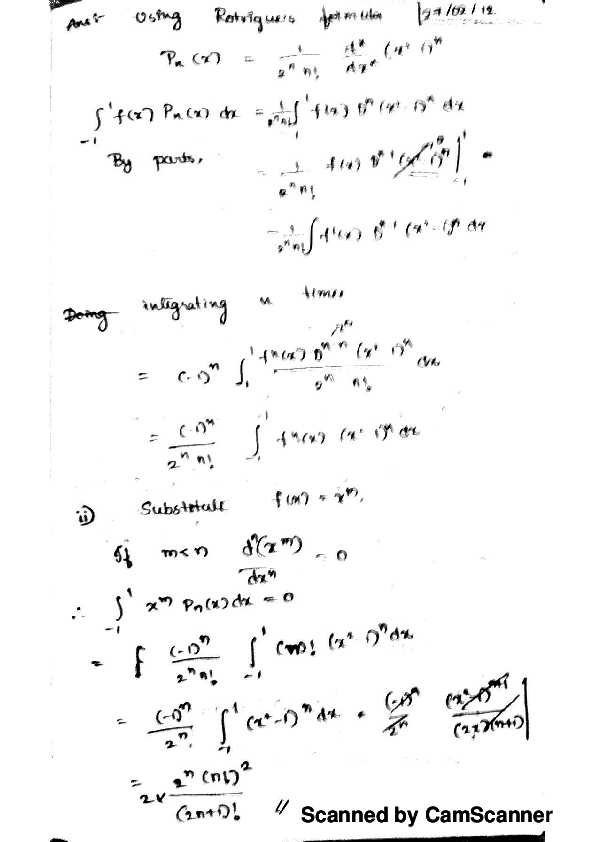 Ans:- Using Rodrigues formula 27/02/12
Pn (x) = 1/(2^n n!) d^n/dx^n (x² - 1)^n
∫_{-1}^{1} f(x) Pn(x) dx = 1/(2^n n!) ∫_{-1}^{1} f(x) D^n (x² - 1)^n dx
By parts, = 1/(2^n n!) f(x) D^{n-1} (x² - 1)^n |_{-1}^{1} -
- 1/(2^n n!) ∫ f'(x) D^{n-1} (x² - 1)^n dx
Doing integrating n times
= (-1)^n ∫_{-1}^{1} f^n(x) D^{n-n} (x² - 1)^n / (2^n n!) dx
= (-1)^n / (2^n n!) ∫_{-1}^{1} f^n(x) (x² - 1)^n dx
ii) Substitute f(x) = x^m.
If m<n d^n(x^m)/dx^n = 0
∴ ∫_{-1}^{1} x^m Pn(x) dx = 0
= (-1)^n / (2^n n!) ∫_{-1}^{1} (n)! (x² - 1)^n dx
= (-1)^n / 2^n ∫_{-1}^{1} (x² - 1)^n dx = (-1)^n / 2^n (x² - 1)^{n+1} / (2x)(n+1) |
= 2 × 2^n (n!)² / (2n+1)! //
Scanned by CamScanner